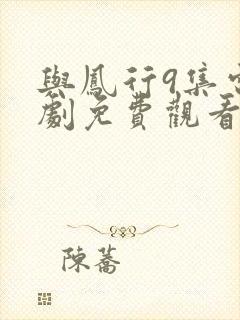 與鳳行9集電
劇免費觀看
陳蕎